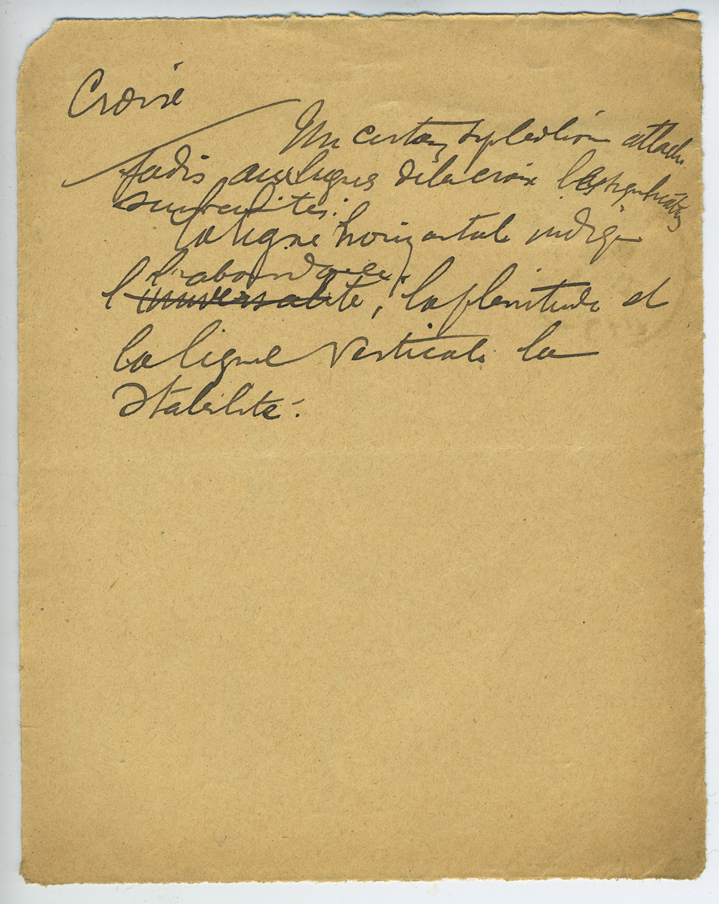 Croix
Un certain symbolisme attache
jadis aux lignes de la croix les significations
suivantes:
la ligne horizontale indique
l'abondance
l'universalité, la plénitude et
la ligne verticale la
stabilité.